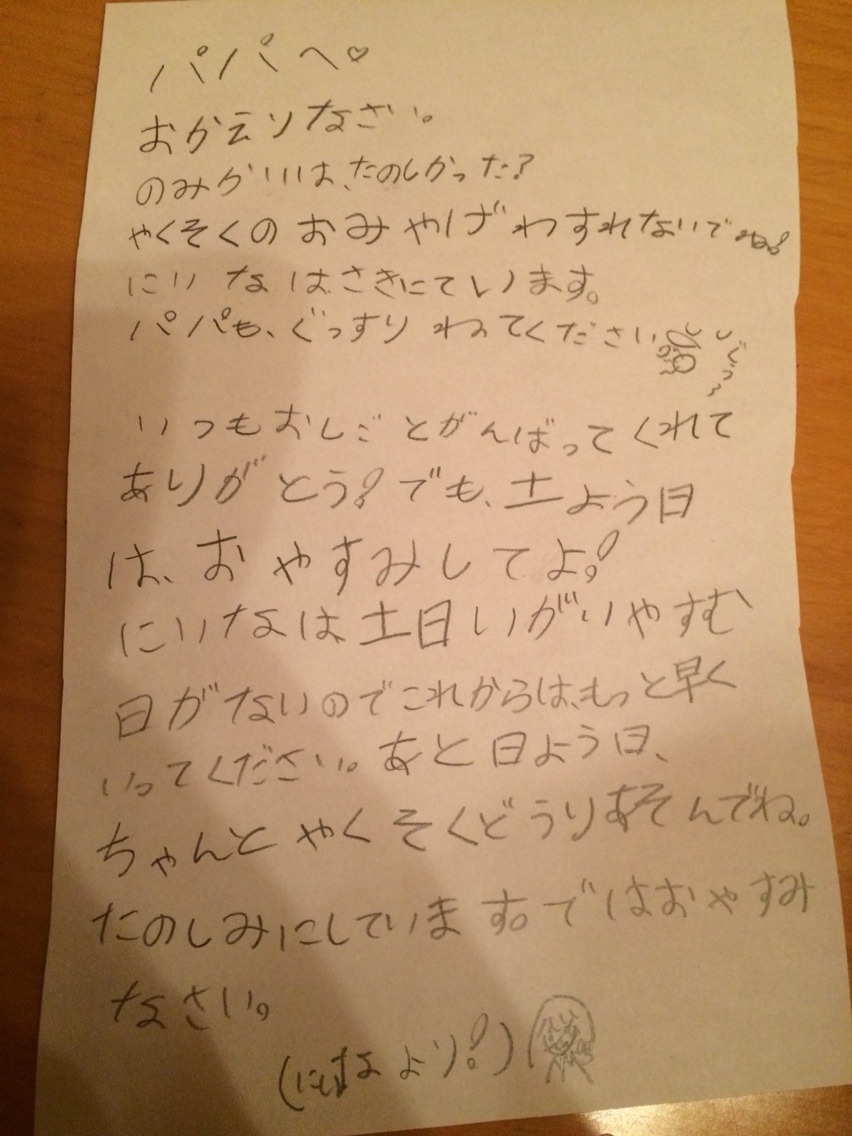 パパへ♡
おかえりなさい。
のみかいは、たのしかった?
やくそくのおみやげわすれないでね!
にいなはさきにています。
パパも、ぐっすりねてください
ぐっ
いつもおしごとがんばってくれて
ありがとう!でも、土よう日
は、おやすみしてよ!
にいなは土日いがいやすむ
日がないのでこれからは、もっと早く
いってください。あと日よう日、
ちゃんとやくそくどうりあそんでね。
たのしみにしています。ではおやすみ
なさい。
(にいなより!)